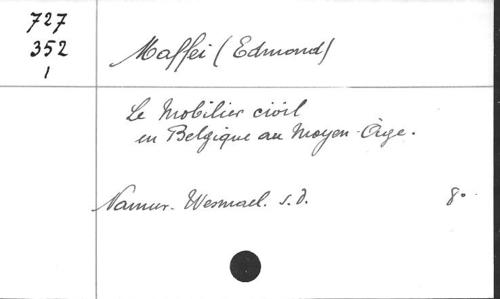 727
352
1
Maffei (Edmond)
Le Mobilier civil
en Belgique au Moyen-Âge.
Namur. Wesmael. s.d. 8o